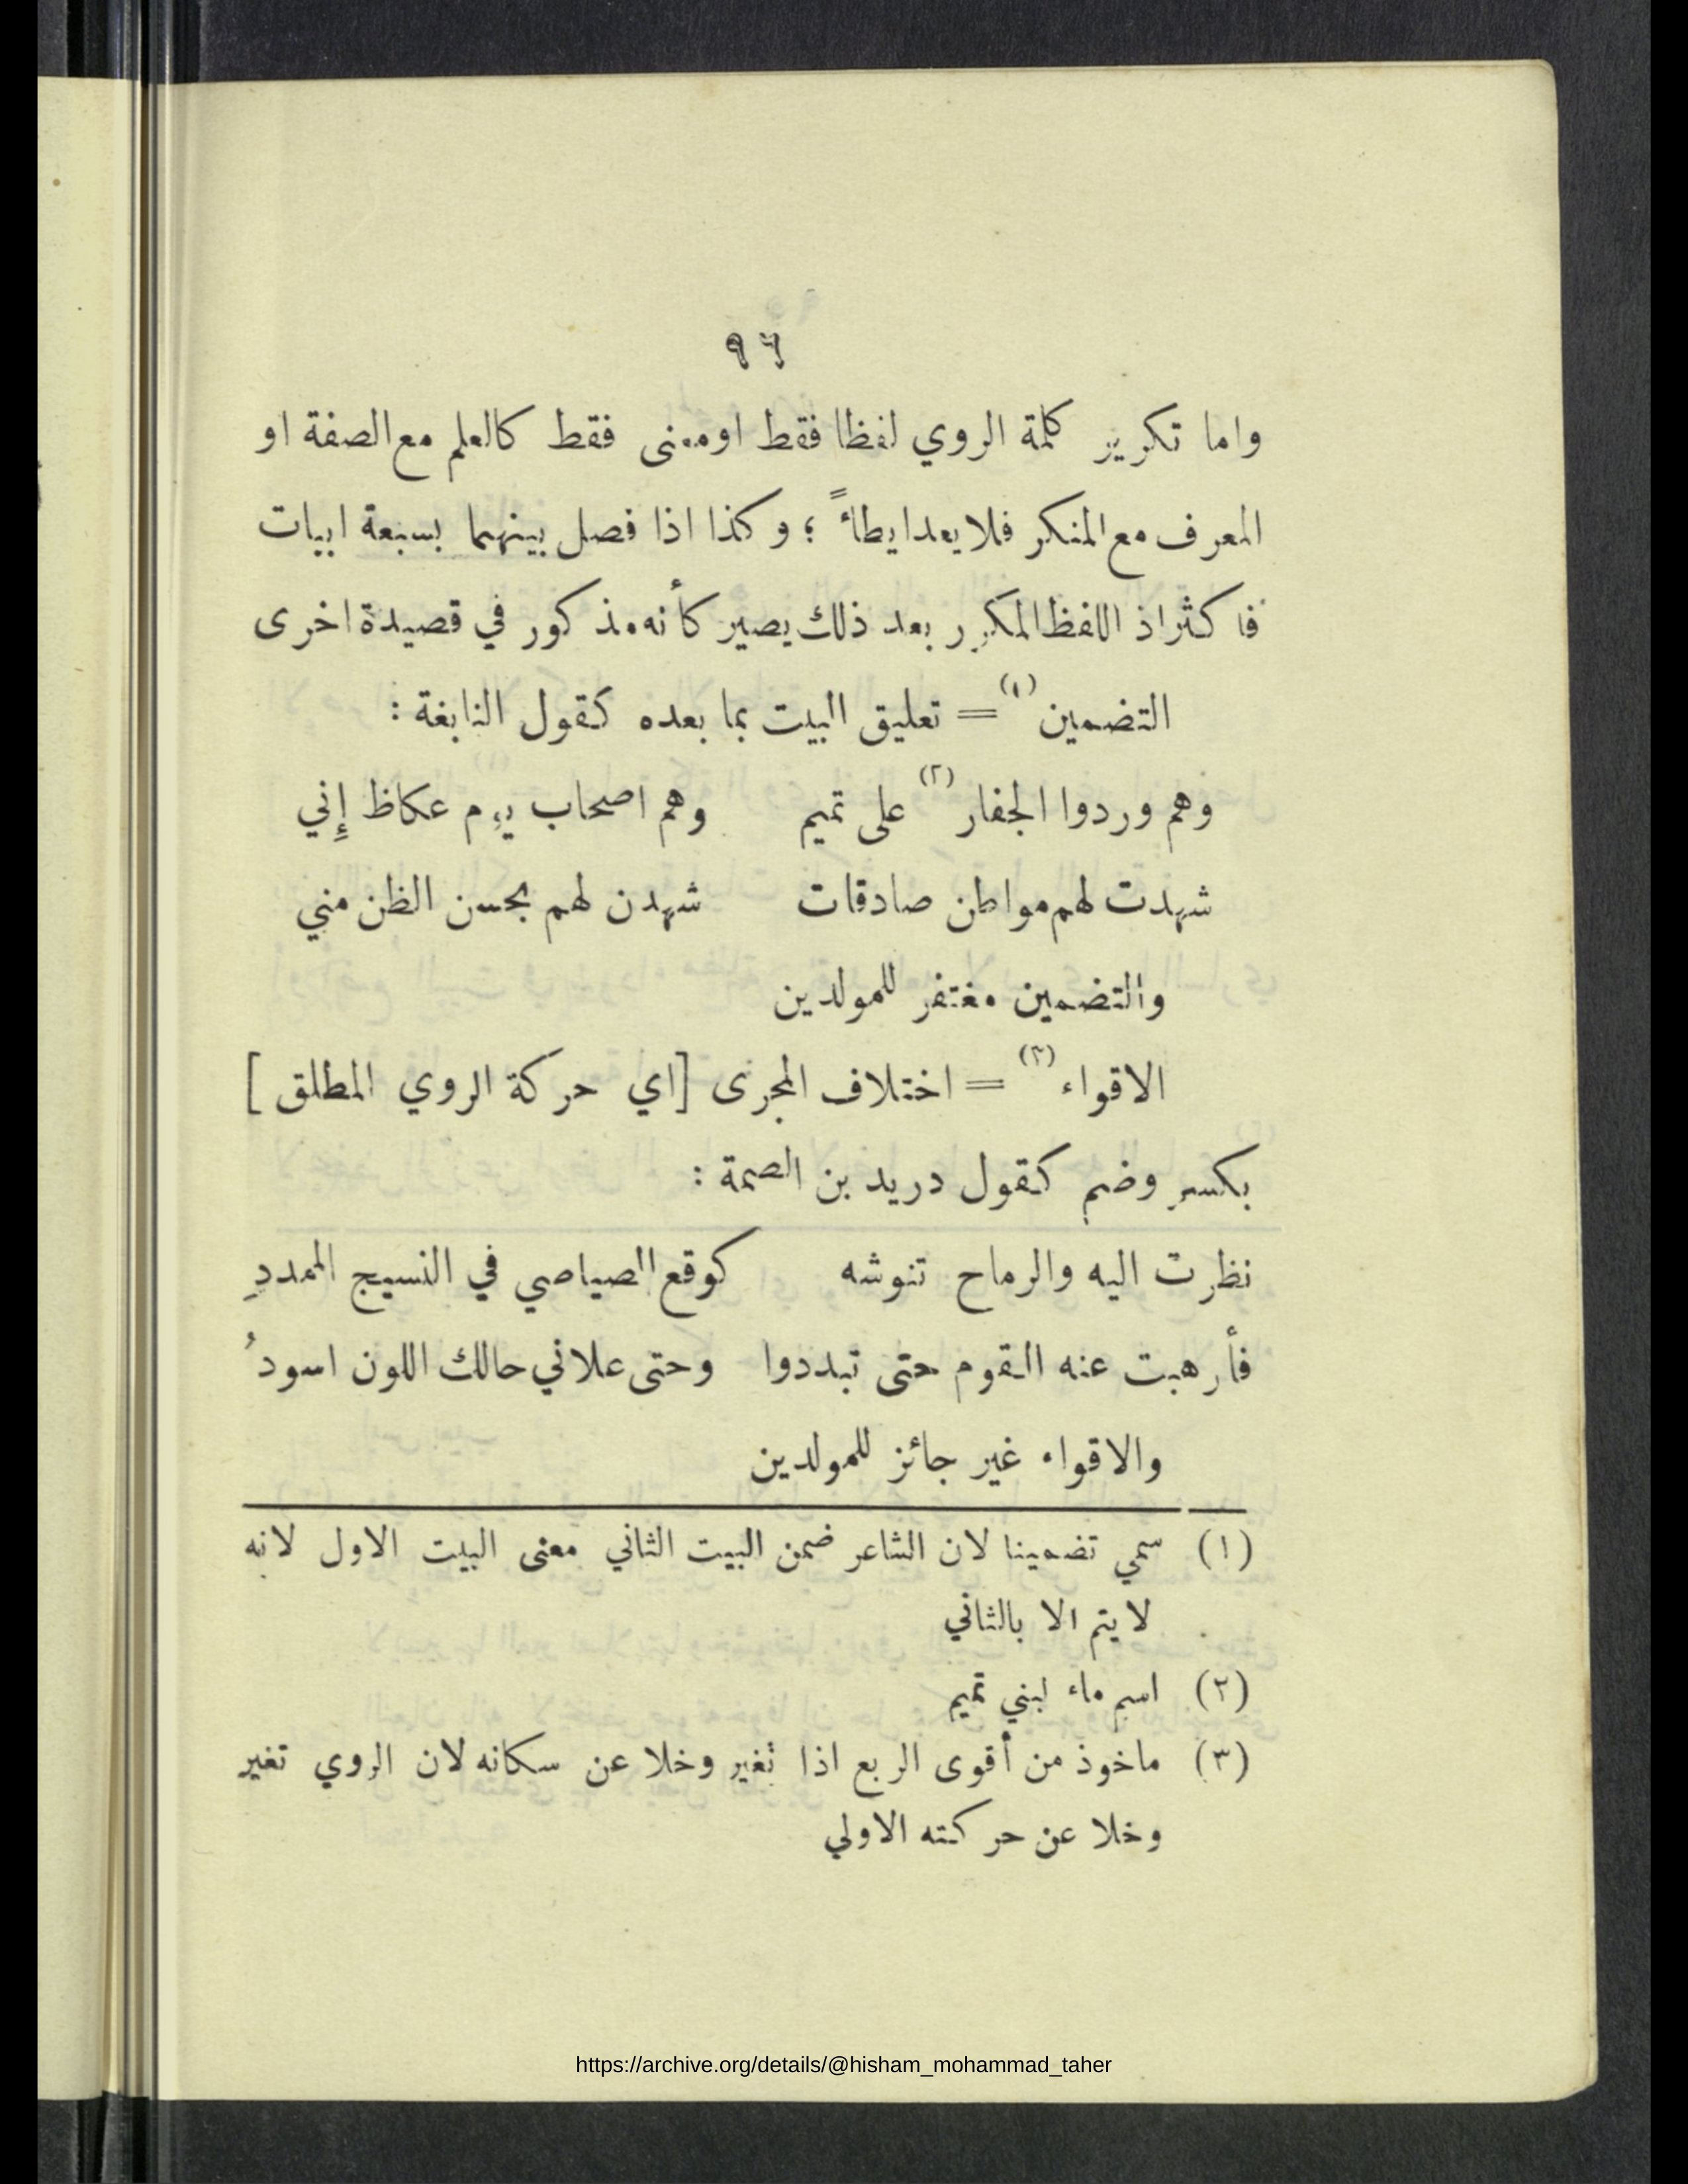 ٩٦
واما تكرير كلمة الروي لفظا فقط او معنى فقط كالعلم مع الصفة او
المعرف مع المنكر فلا يعد ايطاءً ؛ وكذا اذا فصل بينهما بسبعة ابيات
فاكثر اذ اللفظ المكرر بعد ذلك يصير كأنه مذكور في قصيدة اخرى
التضمين (١) = تعليق البيت بما بعده كقول النابغة :
وهم وردوا الجفار (٢) على تميم وهم اصحاب يوم عكاظ إني
شهدت لهم مواطن صادقات شهدن لهم بحسن الظن مني
والتضمين مغتفر للمولدين
الاقواء (٣) = اختلاف المجرى [اي حركة الروي المطلق]
بكسر وضم كقول دريد بن الصمة :
نظرت اليه والرماح تنوشه كوقع الصياصي في النسيج الممددِ
فأرهبت عنه القوم حتى تبددوا وحتى علاني حالك اللون اسودُ
والاقواء غير جائز للمولدين
(١) سمي تضمينا لان الشاعر ضمن البيت الثاني معنى البيت الاول لانه
لا يتم الا بالثاني
(٢) اسم ماء لبني تميم
(٣) ماخوذ من أقوى الربع اذا تغير وخلا عن سكانه لان الروي تغير
وخلا عن حركته الاولي
https://archive.org/details/@hisham_mohammad_taher